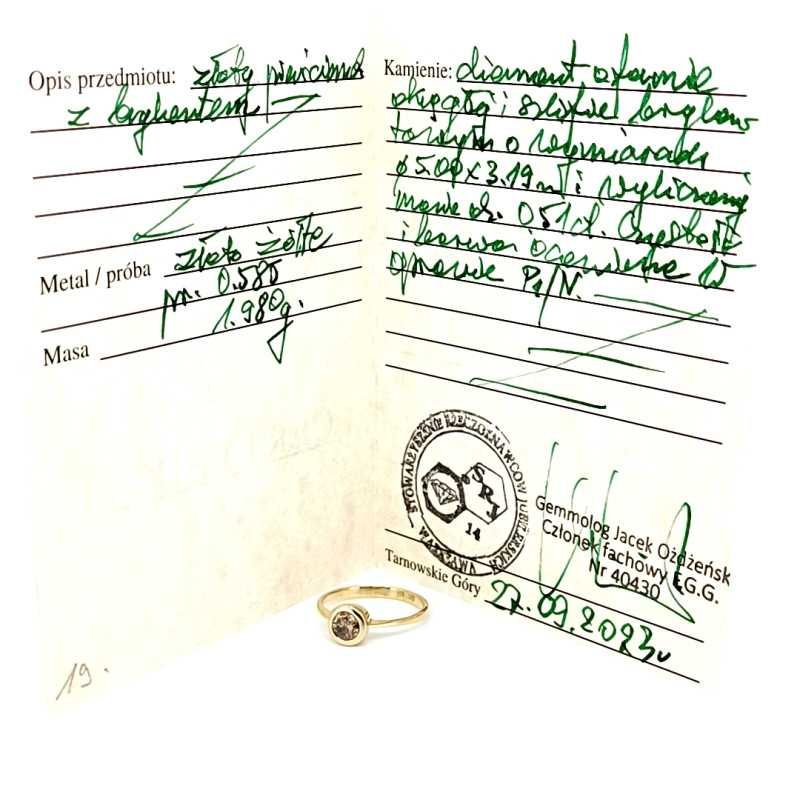 Opis przedmiotu: złoty pierścionek
z brylantem
Metal / próba złoto żółte
pr. 0.585
Masa 1.980g.
19.
Kamienie: diament o formie
okrągłej i szlifie brylan
towym o wymiarach
ø5.00x3.19 m i wyliczonej
masie ok. 0.51ct. Czystość
i barwa oceniona w
oprawie P1/N.
STOWARZYSZENIE RZECZOZNAWCÓW JUBILERSKICH
WARSZAWA
SRJ
14
Gemmolog Jacek Ożdżeńsk
Członek fachowy F.G.G.
Nr 40430
Tarnowskie Góry 27.09.2023